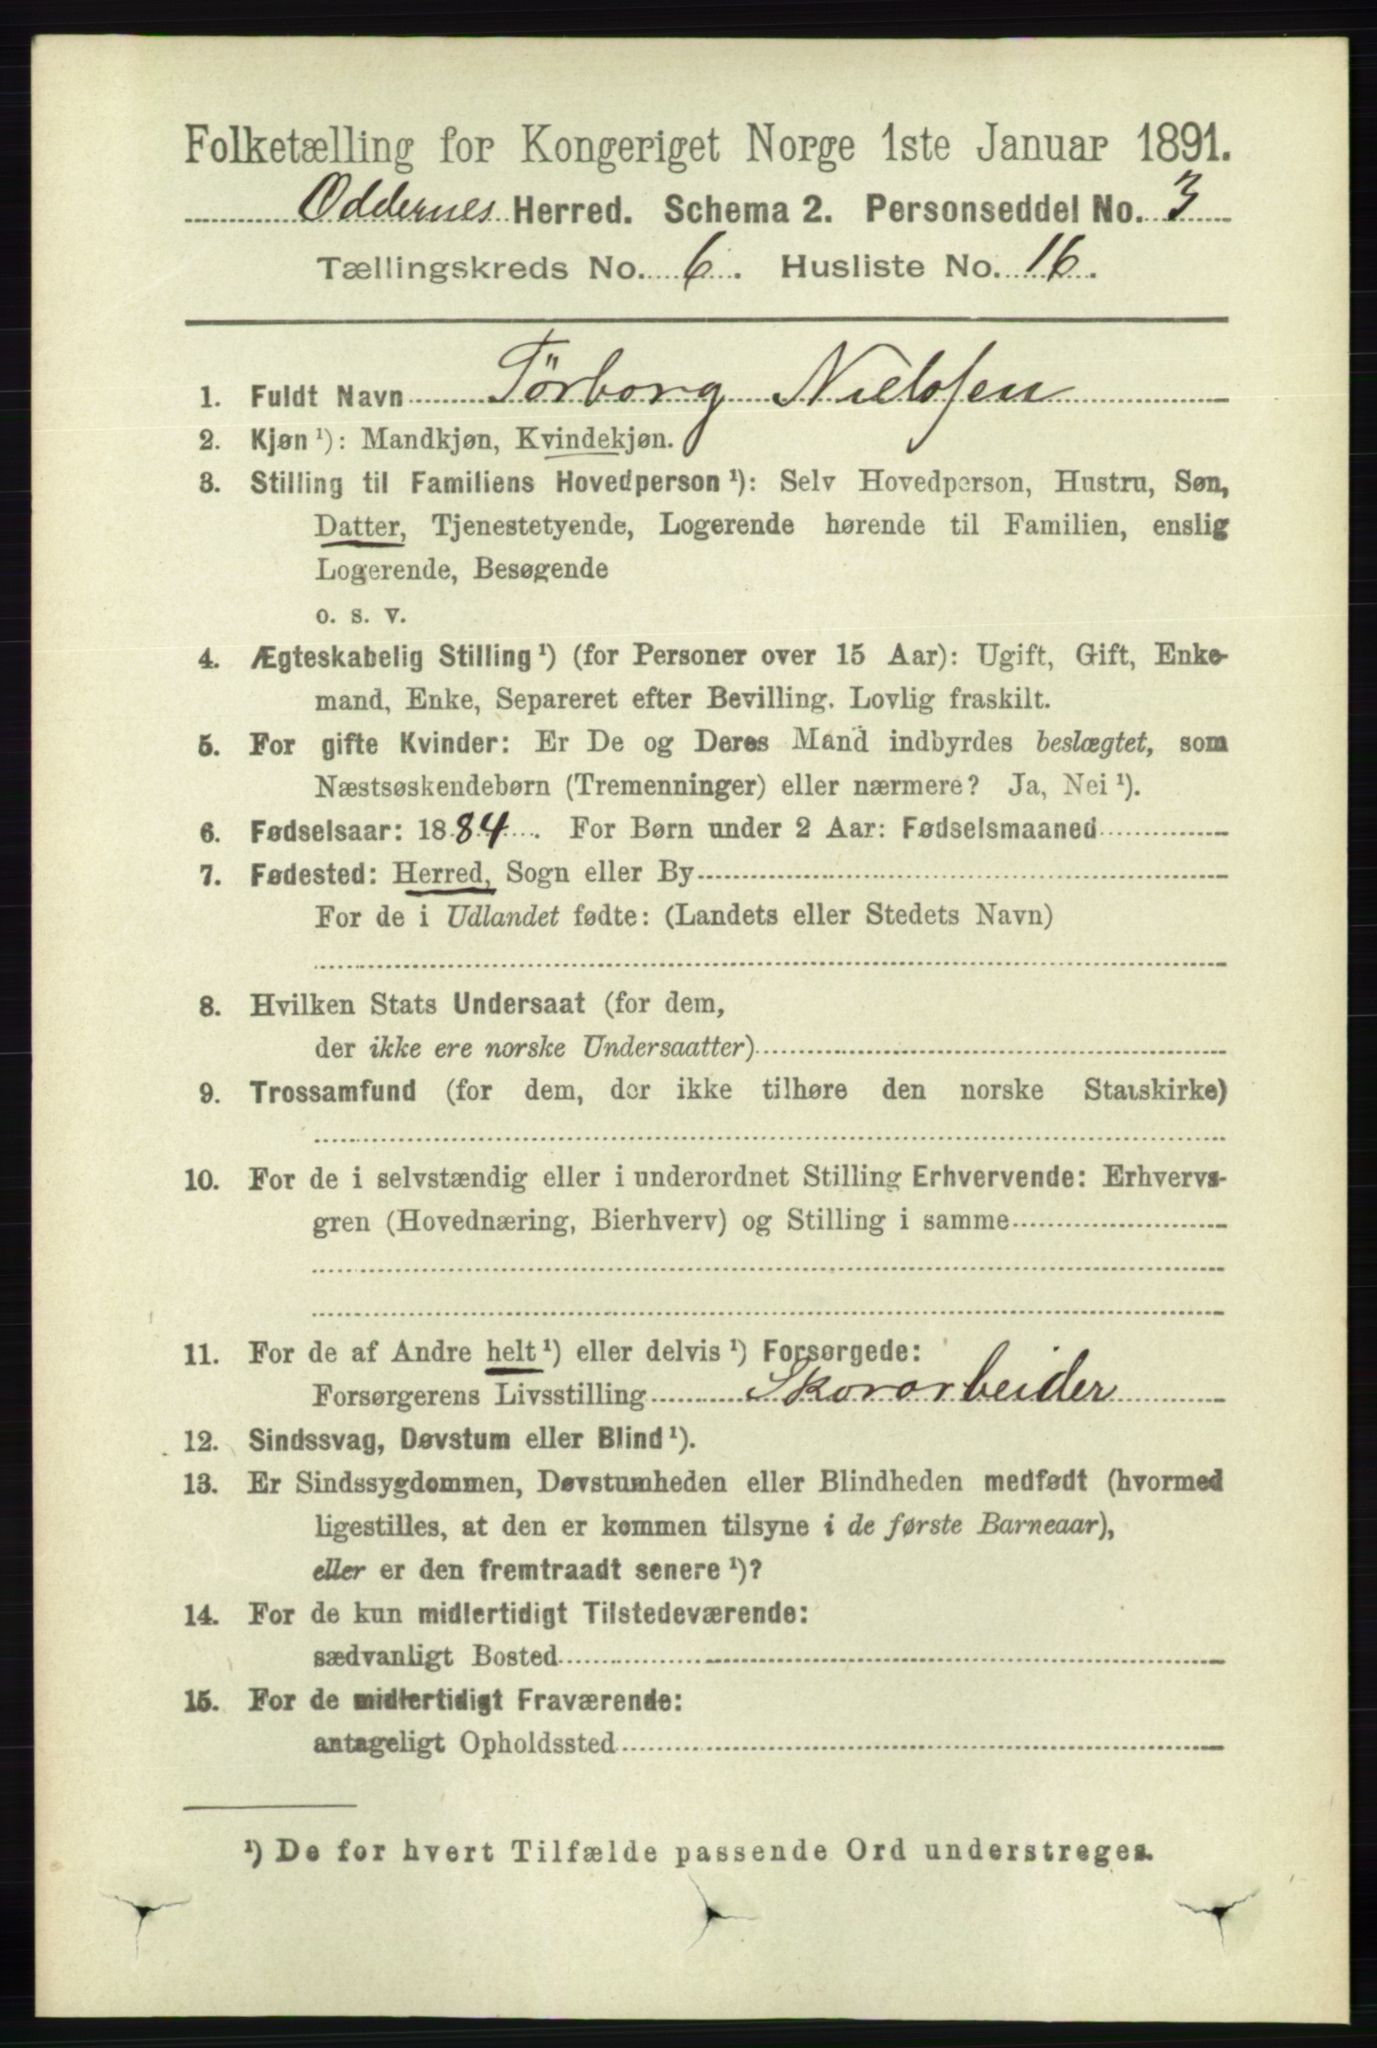 Folketælling for Kongeriget Norge 1ste Januar 1891.
Oddernes Herred. Schema 2. Personseddel No. 3
Tællingskreds No. 6. Husliste No. 16.
1. Fuldt Navn Törborg Nielsen
2. Kjøn ¹): Mandkjøn, Kvindekjøn.
3. Stilling til Familiens Hovedperson ¹): Selv Hovedperson, Hustru, Søn,
Datter, Tjenestetyende, Logerende hørende til Familien, enslig
Logerende, Besøgende
o. s. v.
4. Ægteskabelig Stilling ¹) (for Personer over 15 Aar): Ugift, Gift, Enke-
mand, Enke, Separeret efter Bevilling. Lovlig fraskilt.
5. For gifte Kvinder: Er De og Deres Mand indbyrdes beslægtet, som
Næstsøskendebørn (Tremenninger) eller nærmere? Ja, Nei ¹).
6. Fødselsaar: 1884. For Børn under 2 Aar: Fødselsmaaned
7. Fødested: Herred, Sogn eller By
For de i Udlandet fødte: (Landets eller Stedets Navn)
8. Hvilken Stats Undersaat (for dem,
der ikke ere norske Undersaatter)
9. Trossamfund (for dem, der ikke tilhøre den norske Statskirke)
10. For de i selvstændig eller i underordnet Stilling Erhvervende: Erhvervs-
gren (Hovednæring, Bierhverv) og Stilling i samme
11. For de af Andre helt ¹) eller delvis ¹) Forsørgede:
Forsørgerens Livsstilling Skovarbeider
12. Sindssvag, Døvstum eller Blind ¹).
13. Er Sindssygdommen, Døvstumheden eller Blindheden medfødt (hvormed
ligestilles, at den er kommen tilsyne i de første Barneaar),
eller er den fremtraadt senere ¹)?
14. For de kun midlertidigt Tilstedeværende:
sædvanligt Bosted
15. For de midlertidigt Fraværende:
antageligt Opholdssted
¹) De for hvert Tilfælde passende Ord understreges.